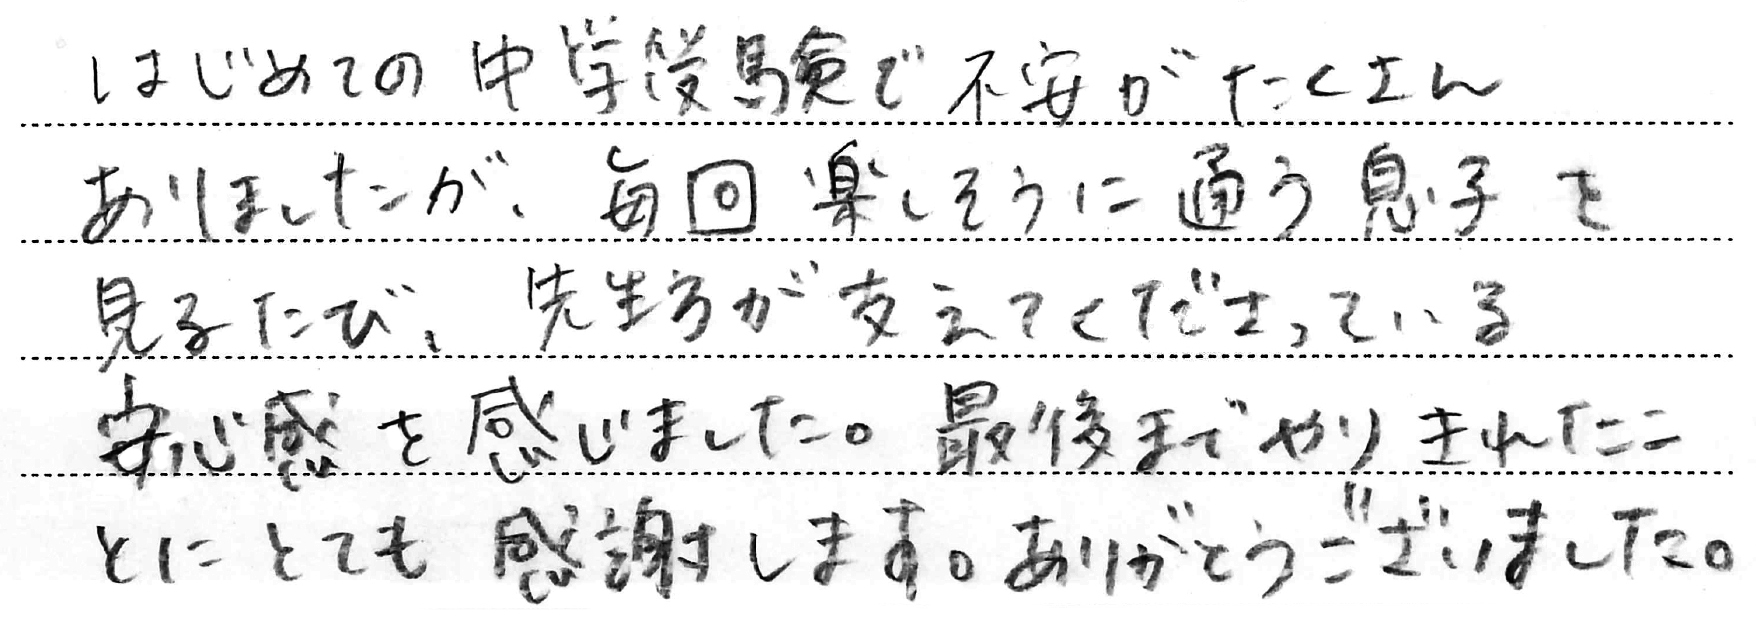 はじめての中学受験で不安がたくさん
ありましたが、毎回楽しそうに通う息子を
見るたび、先生方が支えてくださっている
安心感を感じました。最後までやりきれたこ
とにとても感謝します。ありがとうございました。